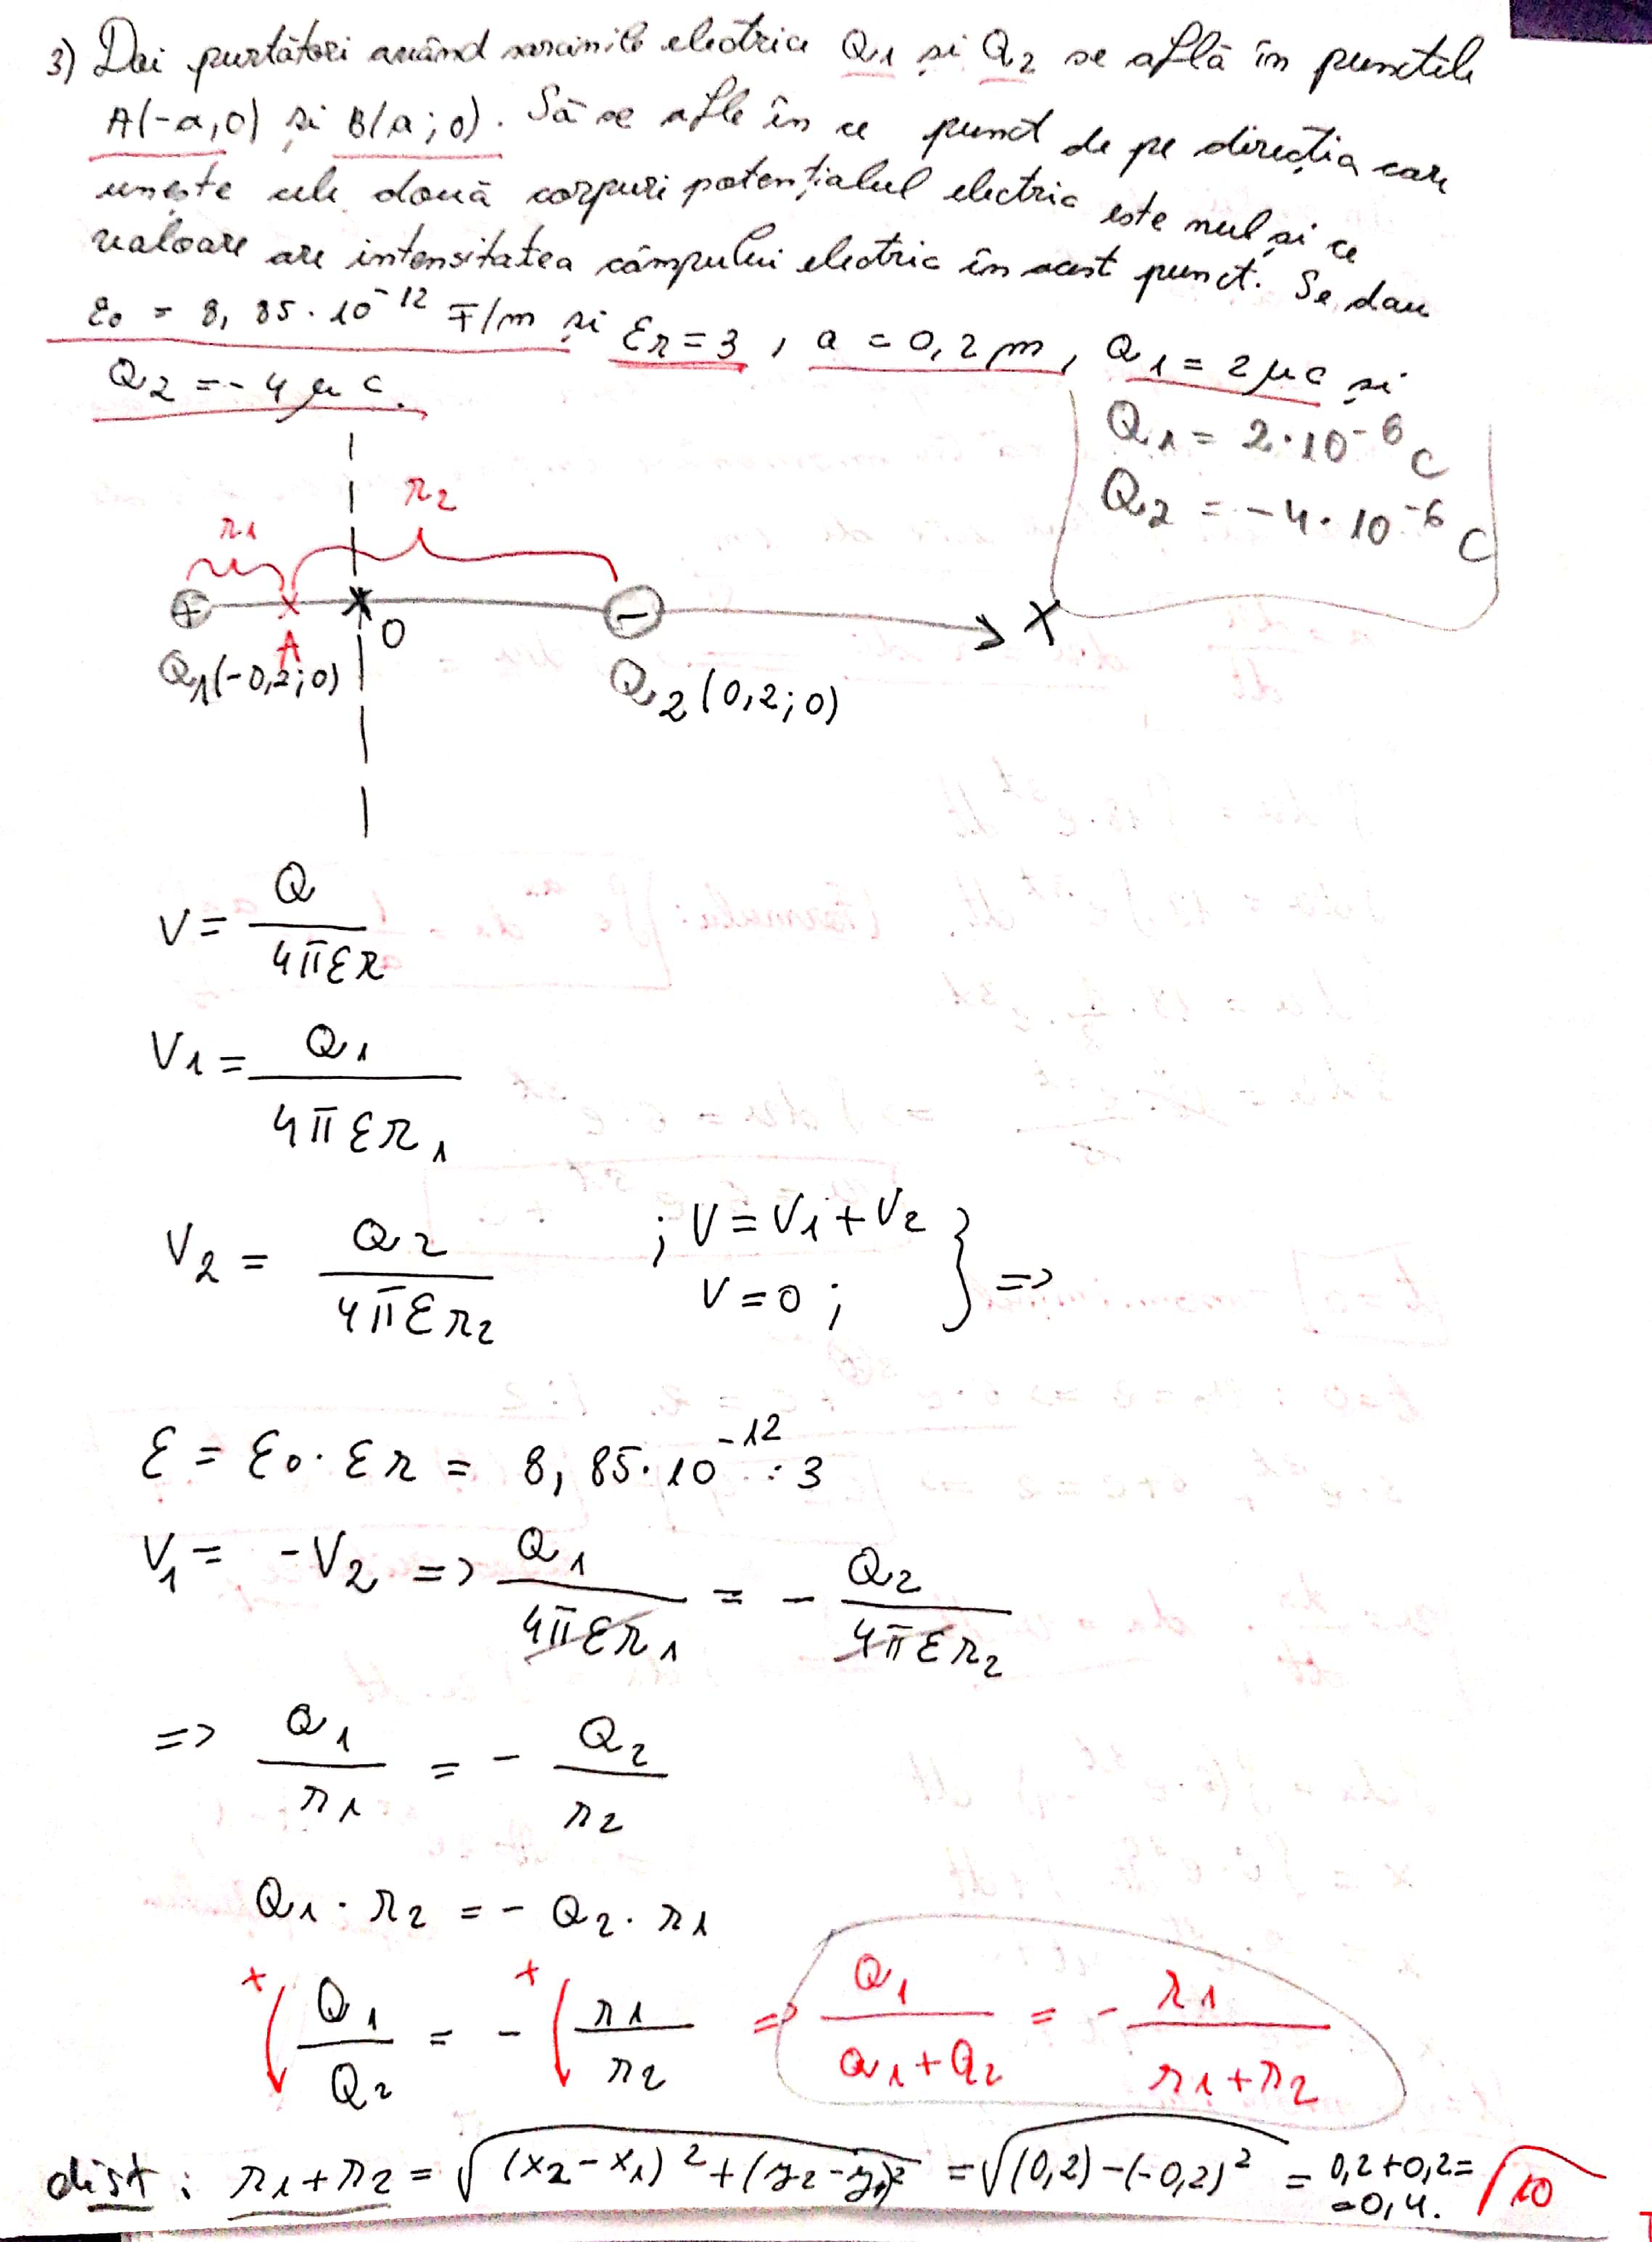 3) Doi purtători având sarcinile electrice Q1 și Q2 se află în punctele
A(-a,0) și B(a;0). Să se afle în ce punct de pe direcția care
unește cele două corpuri potențialul electric este nul și ce
valoare are intensitatea câmpului electric în acest punct. Se dau
ε0 = 8,85·10^-12 F/m și εr=3, a=0,2m, Q1=2μC și
Q2=-4μC.
Q1 = 2·10^-6 C
Q2 = -4·10^-6 C
r1 r2
+ - X
A O
Q1(-0,2;0) Q2(0,2;0)
V = Q / 4πεr
V1 = Q1 / 4πεr1
V2 = Q2 / 4πεr2 ; V=V1+V2
V=0; } =>
ε = ε0·εr = 8,85·10^-12·3
V1 = -V2 => Q1 / 4πεr1 = - Q2 / 4πεr2
=> Q1 / r1 = - Q2 / r2
Q1·r2 = -Q2·r1
+ Q1 / Q2 = - + r1 / r2 => Q1 / Q1+Q2 = - r1 / r1+r2
dist: r1+r2 = √(x2-x1)²+(y2-y1)² = √(0,2)-(-0,2)² = 0,2+0,2=
=0,4. 10